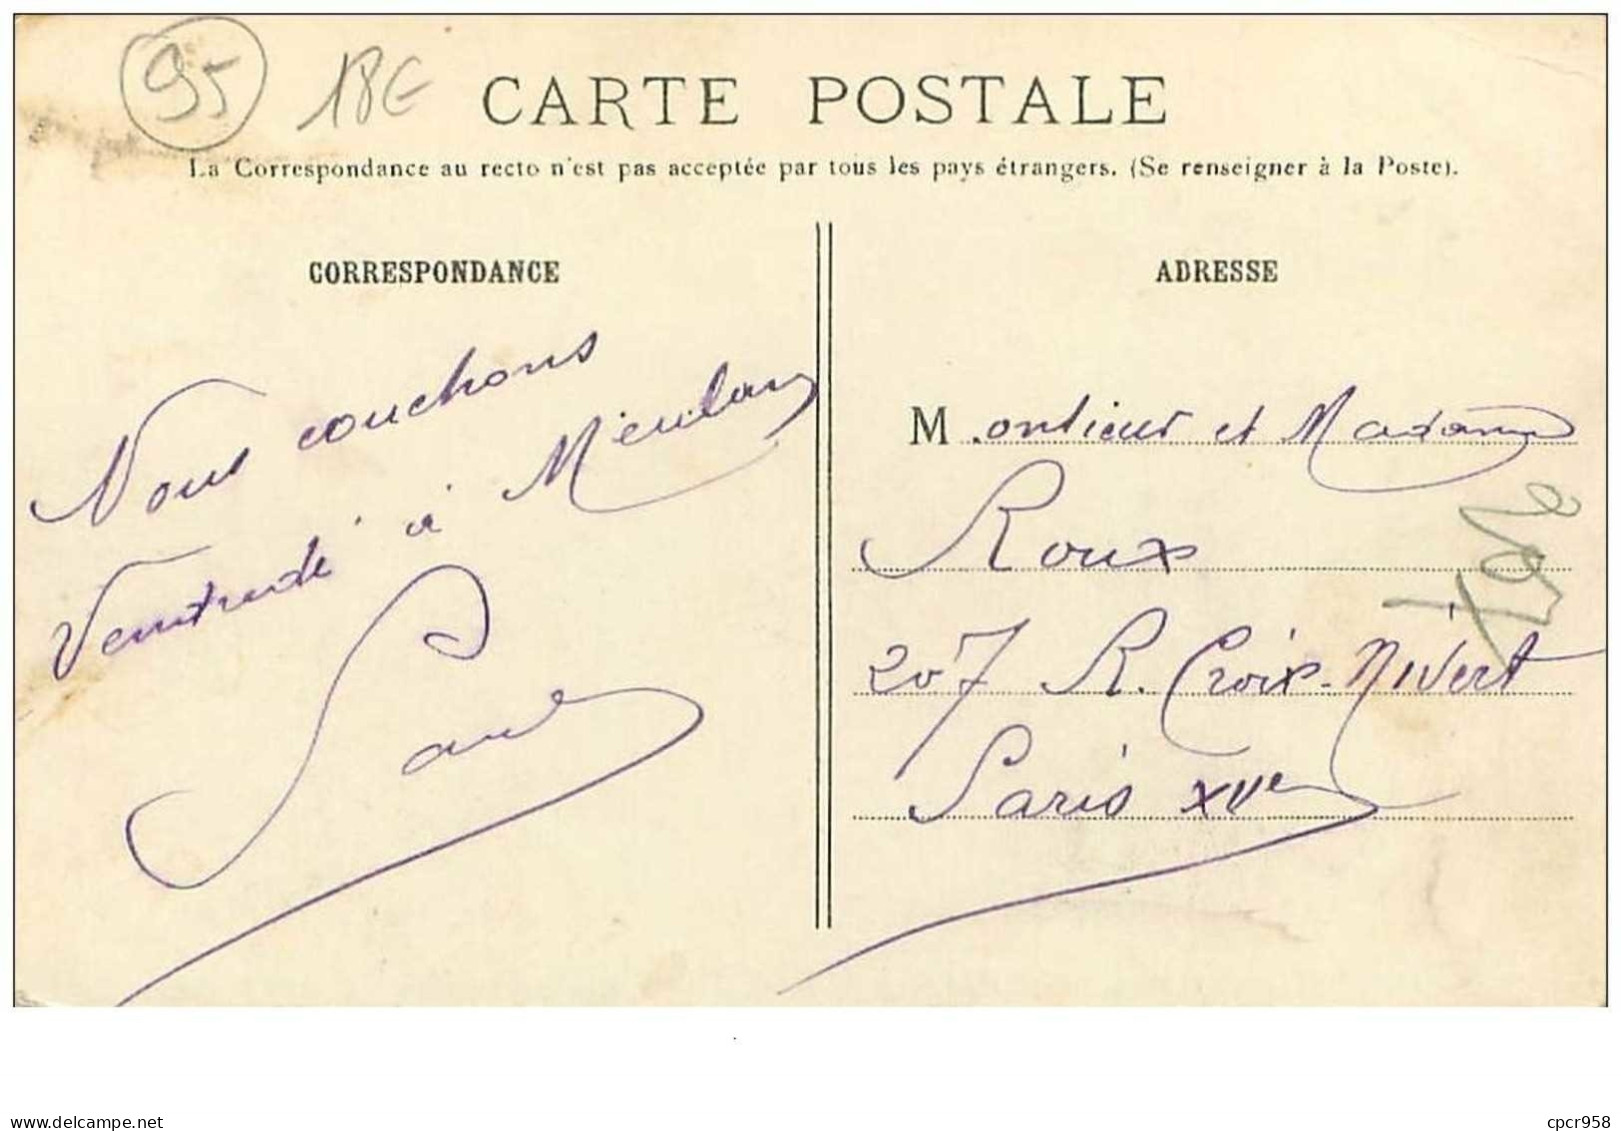 95 18€
CARTE POSTALE
La Correspondance au recto n'est pas acceptée par tous les pays étrangers. (Se renseigner à la Poste).
CORRESPONDANCE
Nous couchons
à Meulan
Paul
ADRESSE
Monsieur et Madame
Roux
207 R. Croix-Nivert
Paris XVe
www.delcampe.net
cpcr958